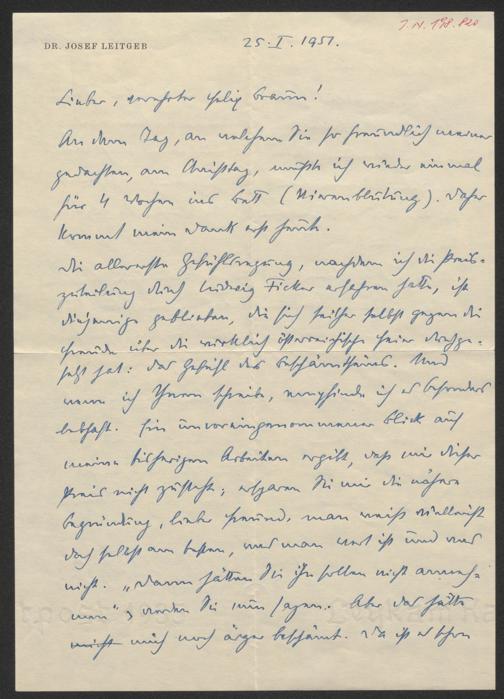 J.N. 198.820
DR. JOSEF LEITGEB
25. I. 1951.
Lieber, verehrter Felix Braun!
An dem Tag, an welchem Sie so freundlich meiner
gedachten, am Christtag, mußte ich wieder einmal
für 4 Wochen ins Bett (Nierenblutung). Daher
kommt mein Dank erst heute.
Die allererste Gefühlsregung, nachdem ich die Preis-
zuteilung durch Ludwig Ficker erfahren hatte, ist
diejenige geblieben, die sich seither selbst gegen die
Freude über die wirklich österreichische Feier durchge-
setzt hat: das Gefühl des Beschämtseins. Und
wenn ich Ihnen schreibe, empfinde ich es besonders
lebhaft. Ein unvoreingenommener Blick auf
meine bisherigen Arbeiten ergibt, daß mir dieser
Preis nicht zusteht; ersparen Sie mir die nähere
Begründung, lieber Freund, man weiß vielleicht
doch selbst am besten, was man wert ist und was
nicht. „Dann hätten Sie ihn sollen nicht anneh-
men", werden Sie nun sagen. Aber das hätte
nicht mich noch ärger beschämt. Da ist es schon